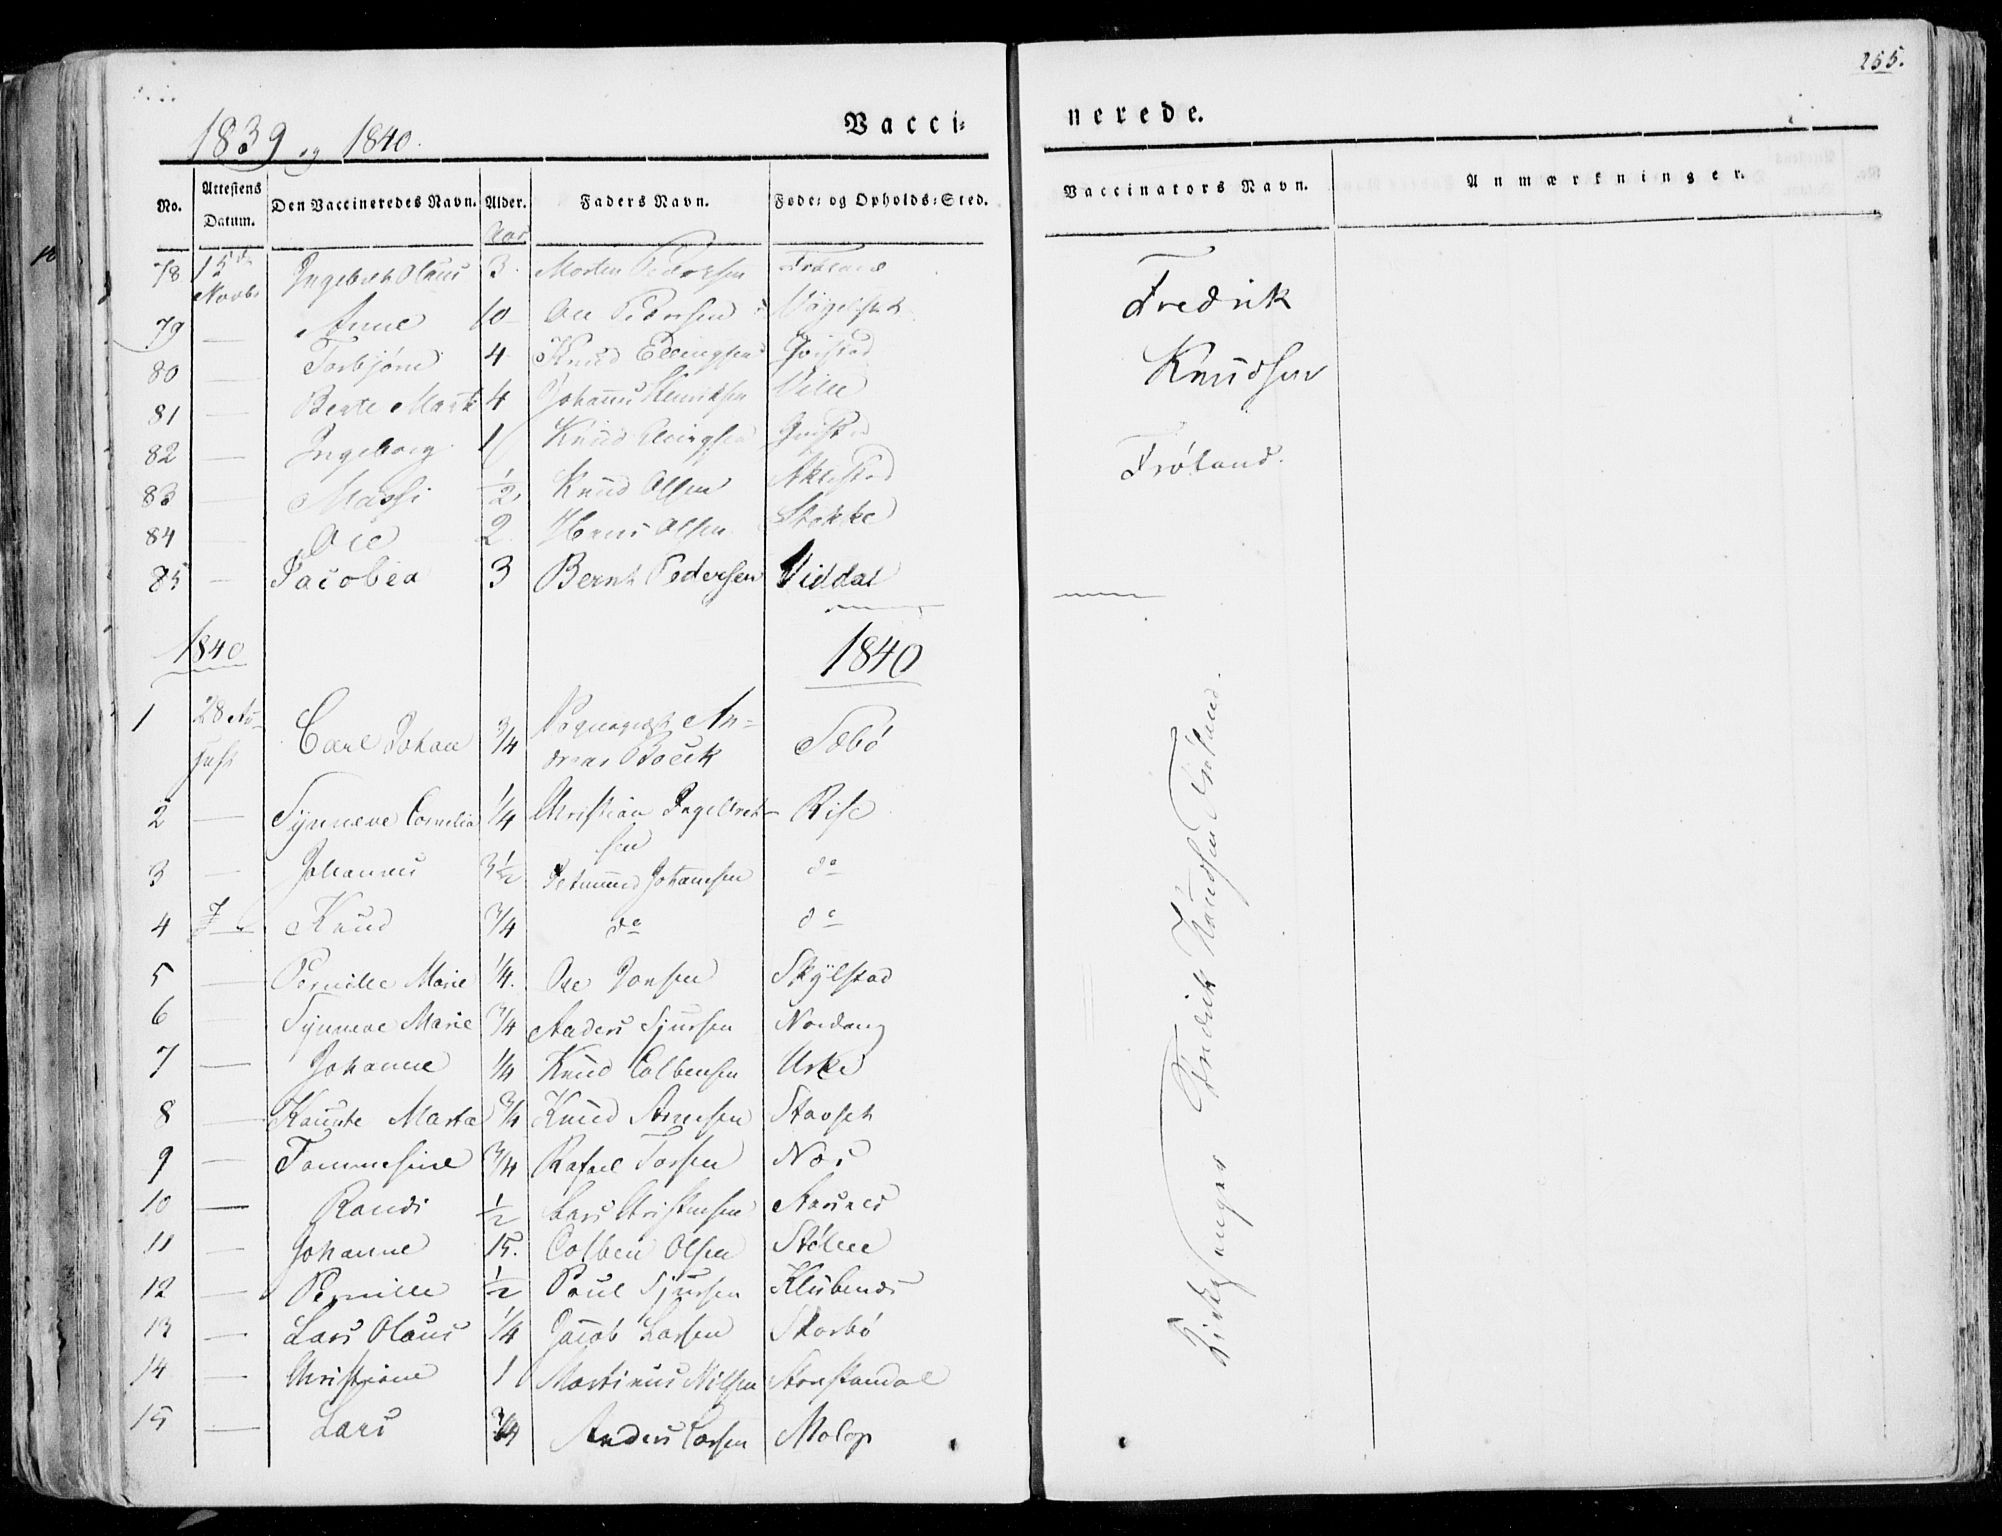 255.
1839 og 1840.
Vacci=nerede.
No. Attestens Datum. Den Vaccineredes Navn. Alder. Faders Navn. Føde= og Opholds=Sted. Vaccinators Navn. Anmærkninger.
Aar
78 15de Novbr Ingebrit Olaus 3 Morten Pedersen Fróland
79 — Anne 10 Ole Pedersen
80 — Torbjörn 4 Knud Ellingsen Qvistad
81 — Berte Marte 4 Johans Henriksen Ville
82 — Ingeborg 1 Knud Ellingsen
83 — Massi 1/2 Knud Olsen
84 — Ole 2 Hans Olsen Stokke
85 — Jacobea 3 Bernt Pedersen Viddal
Fredrik
Knudsen
Fróland.
1840 1840
1 28 August Carl Johan 3/4 Andreas Sæbö
2 — Synneve Cornelia 1/4 Christian Ingebret-
sen Rise
3 — Johannes 3 1/2 Johansen do
4 Knud 3/4 do do
5 — Pernille Marie 1/4. Ole Jonsen Skylstad
6 — Synneve Marie 3/4 Anders Sjursen Nordang
7 — Johanne 1/4 Knud Colbensen Urke
8 — Knute Marta 3/4 Knud Arnesen Stavset
9 — Tommesine 3/4 Rafael Torsen Næs
10 — Randi 1/2 Lars Christensen Aarsnes
11 — Johanne 15. Colben Olsen Stólee
12 — Pernille 1/2 Poul Sjursen Klubenes
13 — Lars Olaus 1/4 Jacob Larsen Skorbö
14 — Christiane 1 Martinus Nilsen Storstandal
15 — Lars 3/4 Anders Larsen Molop
Kirkesanger Fredrik Knudsen Fróland.